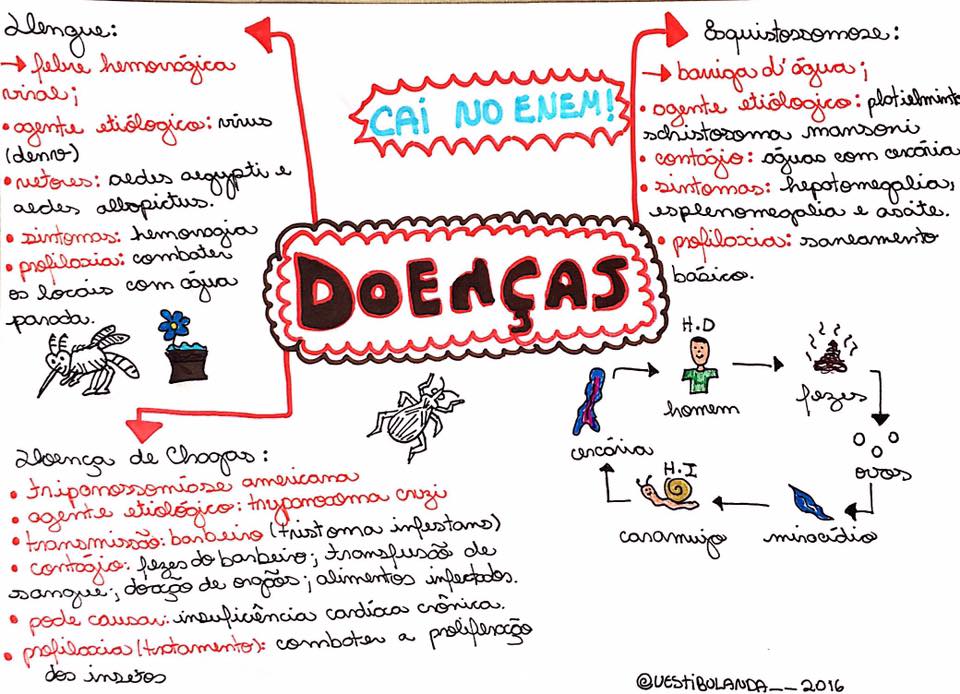 Dengue:
→ febre hemorrágica
viral;
• agente etiólogico: vírus
(denv)
• vetores: aedes aegypti e
aedes albopictus.
• sintomas: hemoragia
• profilaxia: combater
os locais com água
parada.
CAÍ NO ENEM!
DOENÇAS
Esquistossomose:
→ barriga d'água;
• agente etiológico: platielminto
schistosoma mansoni
• contágio: águas com cercária
• sintomas: hepatomegalia,
esplenomegalia e ascite.
• profilaxia: saneamento
básico.
H.D
homem
fezes
ovos
miracídio
H.I
caramujo
cercária
Doença de Chagas:
• tripanossomíase americana
• agente etiológico: trypanosoma cruzi
• transmissão: barbeiro (tristoma infestans)
• contágio: fezes do barbeiro; transfusão de
sangue; doação de orgãos; alimentos infectados.
• pode causar: insuficiência cardíaca crônica.
• profilaxia (tratamento): combater a proliferação
dos insetos
@VESTIBULANDA__2016